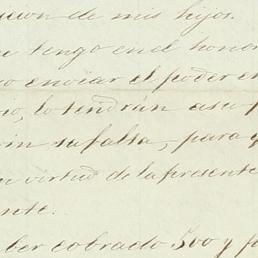 cion de mis hijos.
tengo en el honor
o enviar el poder e
io, lo tendrán a su p
in su falta, para q
virtud de la presente
ente.
ber cobrado 500 y p